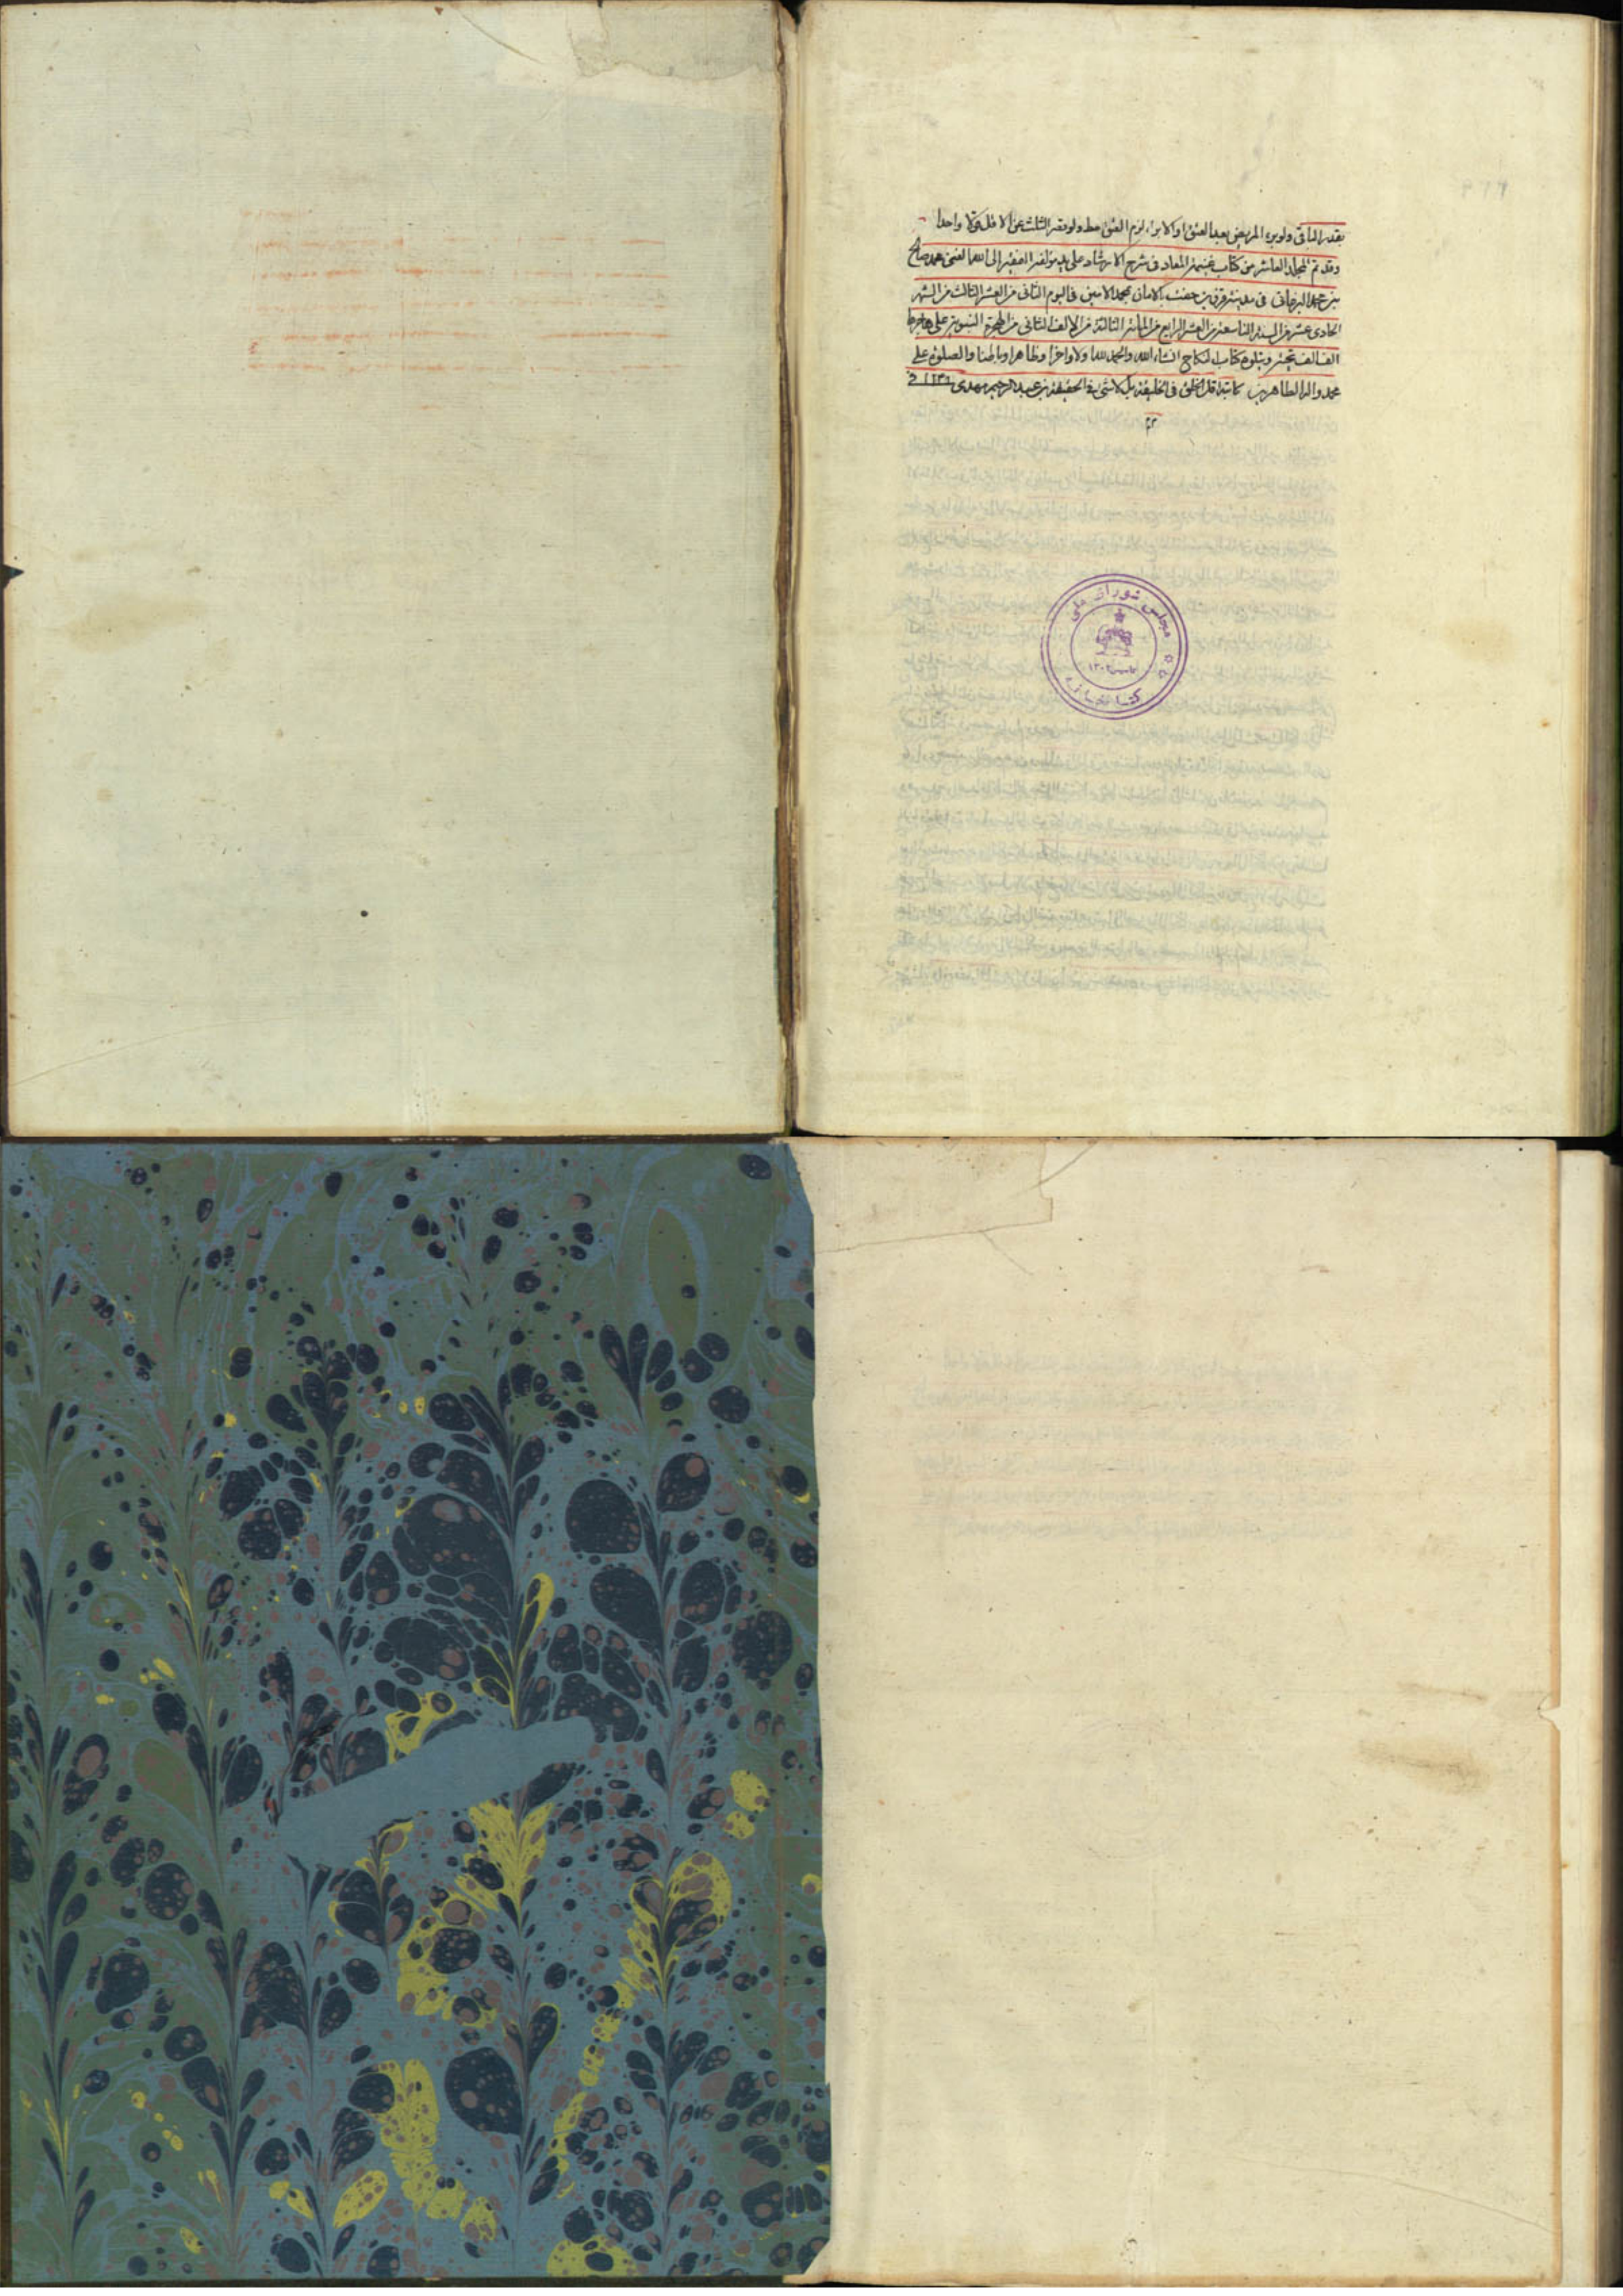 بقدر الباقی ولو برء المریض بعد العتق او الابراء لزم العتق ولو نقص الثلث عن الاقل واحدا
وقد تم المجلد العاشر من کتاب غنیمة المعاد فی شرح الارشاد علی ید مؤلفه الفقیر الی الله الغنی محمد صالح
بن محمد البرغانی فی مدینة قزوین حفت بالامان بمحمد الامین فی الیوم الثانی من العشر الثالث من الشهر
الحادی عشر من السنة التاسعة من العشر الرابع من المائة الثالثة من الالف الثانی من الهجرة النبویة علی هاجرها
الف الف تحیة ویتلوه کتاب النکاح انشاء الله والحمد لله اولا واخرا وظاهرا وباطنا والصلوة علی
محمد واله الطاهرین کاتبه اقل الخلق فی الخلیقة بل لا شیٔ فی الحقیقة بن عبد الرحیم مهدی
مجلس شورای ملی
کتابخانه
۱۳۰۲